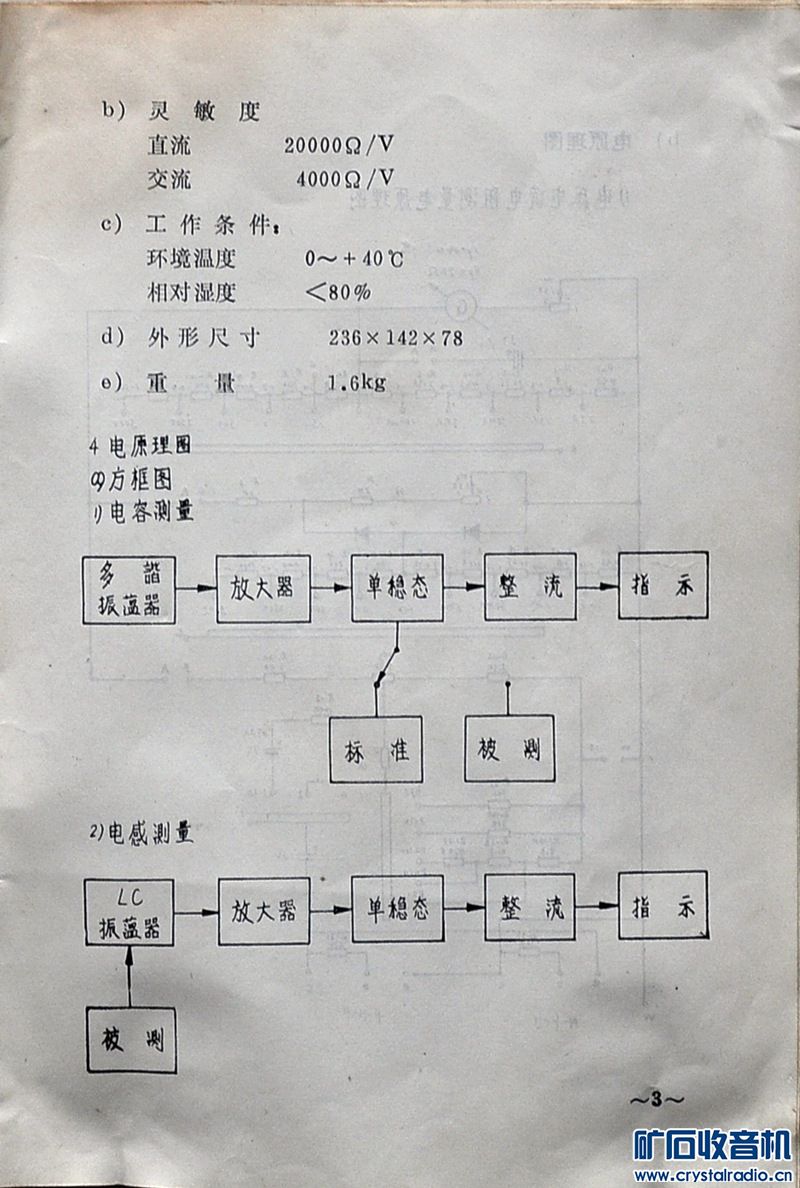 b) 灵敏度
直流 20000Ω/V
交流 4000Ω/V
c) 工作条件:
环境温度 0～+40℃
相对湿度 <80%
d) 外形尺寸 236×142×78
e) 重量 1.6kg
4 电原理图
a)方框图
1)电容测量
多諧
振蕰器
放大器
单稳态
整流
指示
标准
被测
2)电感测量
LC
振蕰器
放大器
单稳态
整流
指示
被测
～3～
矿石收音机
www.crystalradio.cn